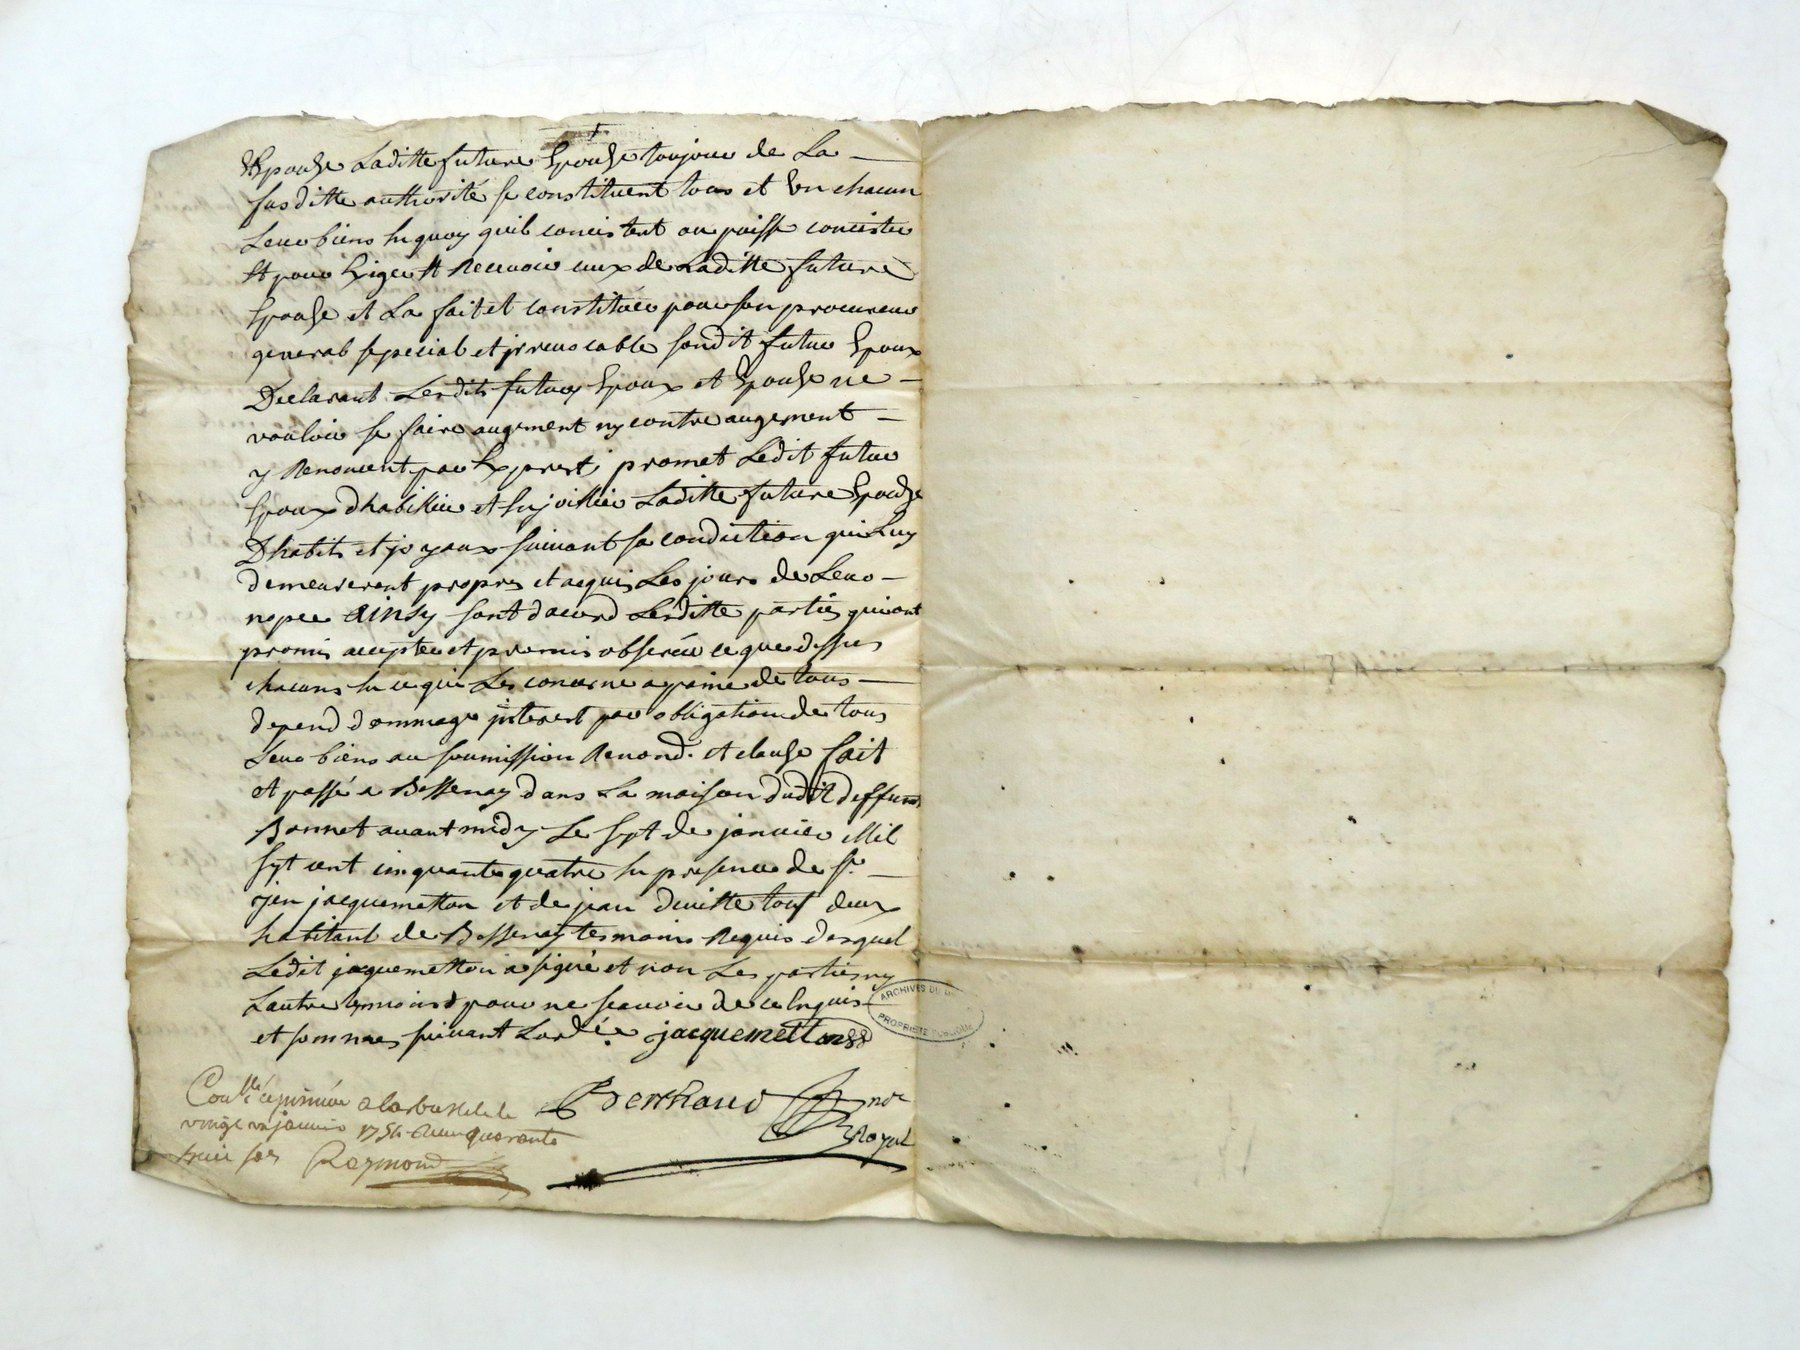 Epouse Laditte future Epouse toujour de La
susditte authorité se constituent tous et un chacun
Leur biens En quoy quil concistent ou puisse concister
Et pour Exiger Et Recevoir ceux de Laditte future
Epouse et La fait et constituer pour son procureur
general spescial et jrrevocable sondit futur Epoux
Declarant Lesdits futurs Epoux et Epouse ne
vouloir se faire augment ny contre augement
y Renoncent par Exprest, promet Ledit futur
Epoux dhabillier et Enjoillier Laditte future Epouse
Dhabits et joyaux suivant sa condiction qui Luy
demeureront propres et acquis Les jours de Leur
nopce ainsy sont dacord Lesditte parties qui ont
promis accepter et promis observer ce que dessus
chacuns En ce qui Les concerne a paine de tous
depend dommage jnterest par obligation de tous
Leur biens au soumission Renond. et clause fait
et passé a Bessenay dans La maison dudit deffunt
Bonnet avant midy Le sept de janvier Mil
sept cent cinquante quatre En presence de Sr.
jen jacquemetton et de jean tout deux
habitant de Bessenay tesmoins Requis desquel
Ledit jacquemetton a signé et non Les parties ny
Lautre temoins pour ne scavoir de ce Enquis
et sommes suivant Lord.ce jacquemetton
Conllé a larbresle le
vingt janvier 1754 Reçu quarante
huit sols Raymond
Berthaud nore
Royal
ARCHIVES DU
PROPRIETE PUBLIQUE